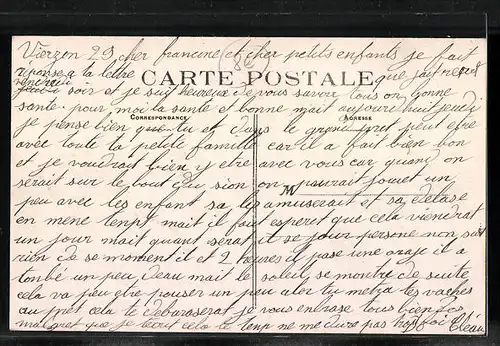 Vierzon 29 cher francine et cher petits enfants je fait
reponse a la lettre que jai reçu
CARTE POSTALE
vendredi soir et je suis heureuse de vous savoir tous en bonne
sante pour moi la sante et bonne mait aujourdhuit jeudi
CORRESPONDANCE ADRESSE
je pense bien que tu et dans le grand pret peut etre
avec toute la petite famille car il a fait bien bon
et je voudrait bien y etre avec vous car quand on
serait sur le bout du sion on pourrait jouer un
M
peu avec les enfant sa les amuserait et sa delase
en mene tenpt mait il faut esperer que cela viendrat
un jour mait quant serat il se jour persone non sait
rien de se moment il et 2 heures il pase une oraje il a
tonbé un peu deau mait le soleil se montre de suite
cela va peu etre pouser un peu aler tu metra tes vaches
au pret cela te debaraserat je vous enbrase tous bien fort
malgret que je tecrit cela le tenp ne me dure pas trop